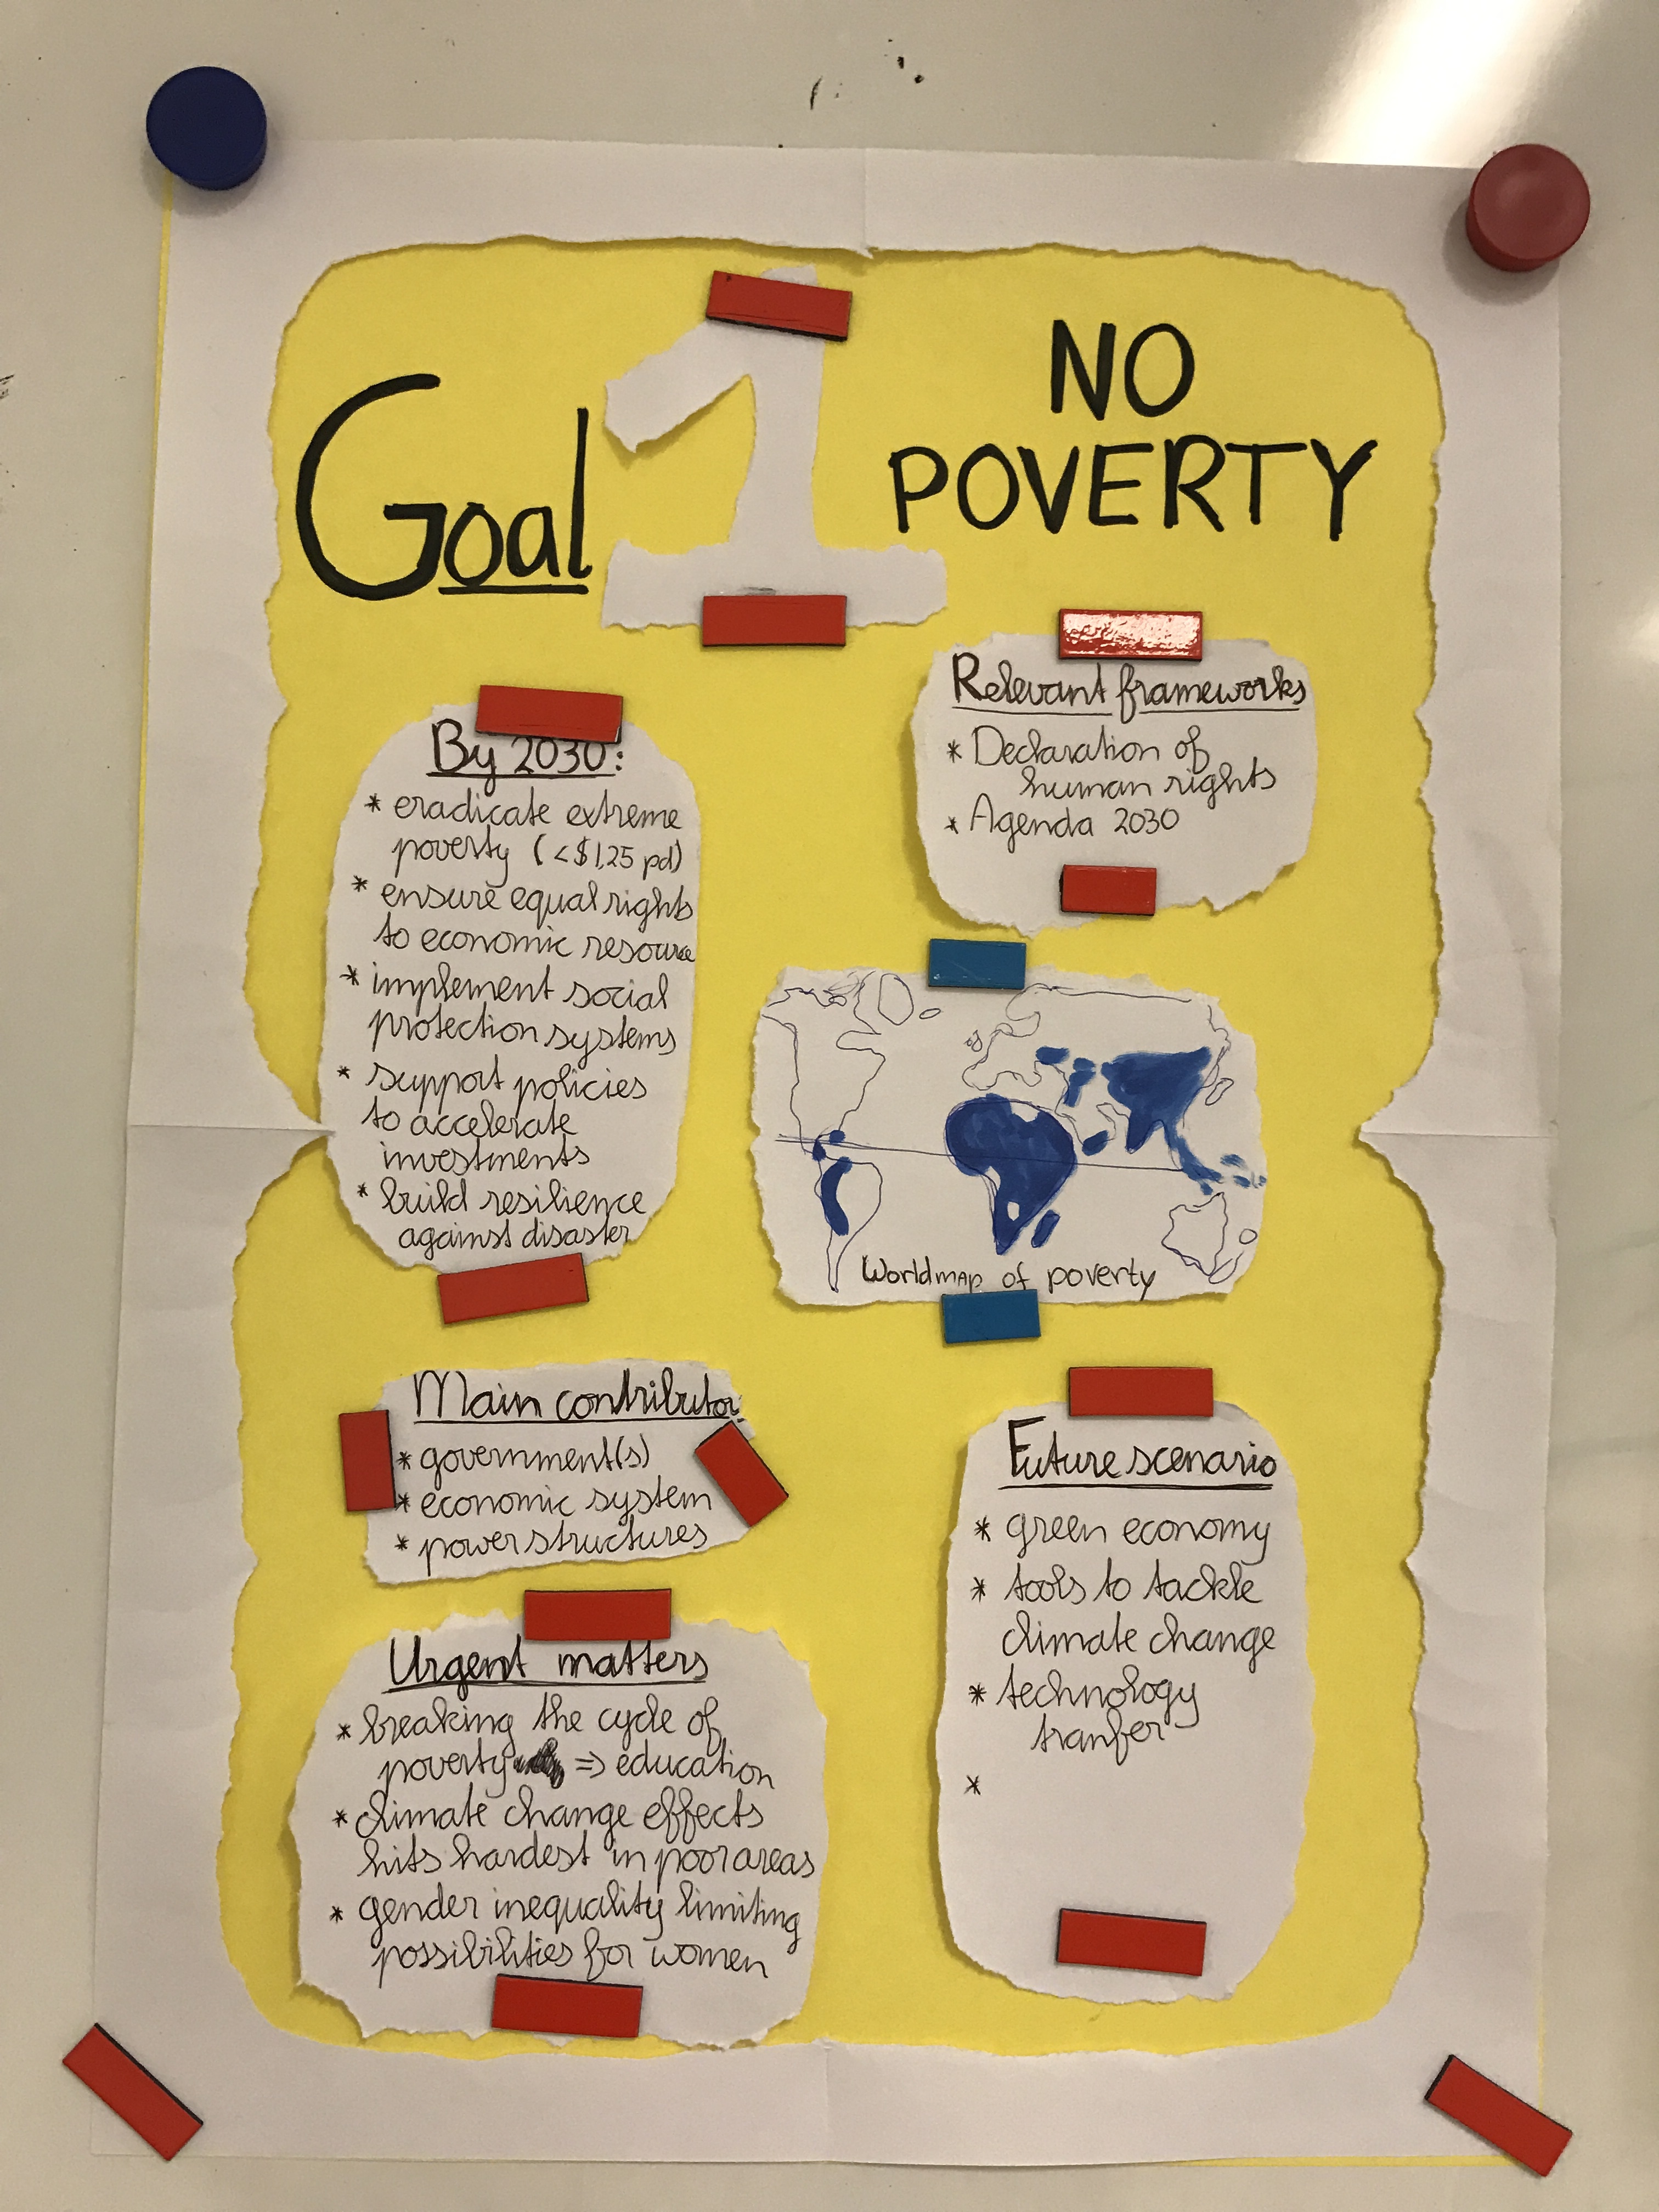 Goal 1
NO
POVERTY
By 2030:
* eradicate extreme
poverty (<$1,25 pd)
* ensure equal rights
to economic resource
* implement social
protection systems
* support policies
to accelerate
investments
* build resilience
against disaster
Relevant frameworks
* Declaration of
human rights
* Agenda 2030
Worldmap of poverty
Main contributor:
* government(s)
* economic system
* power structures
Urgent matters
* breaking the cycle of
poverty => education
* climate change effects
hits hardest in poor areas
* gender inequality limiting
possibilities for women
Future scenario
* green economy
* tools to tackle
climate change
* technology
tranfer
*